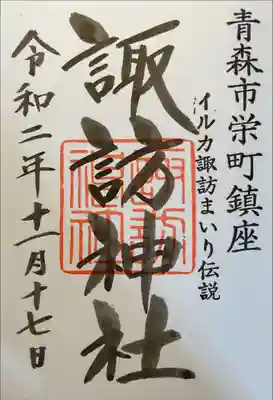 青森市栄町鎮座
イルカ諏訪まいり伝説
諏訪神社
令和二年十一月十七日